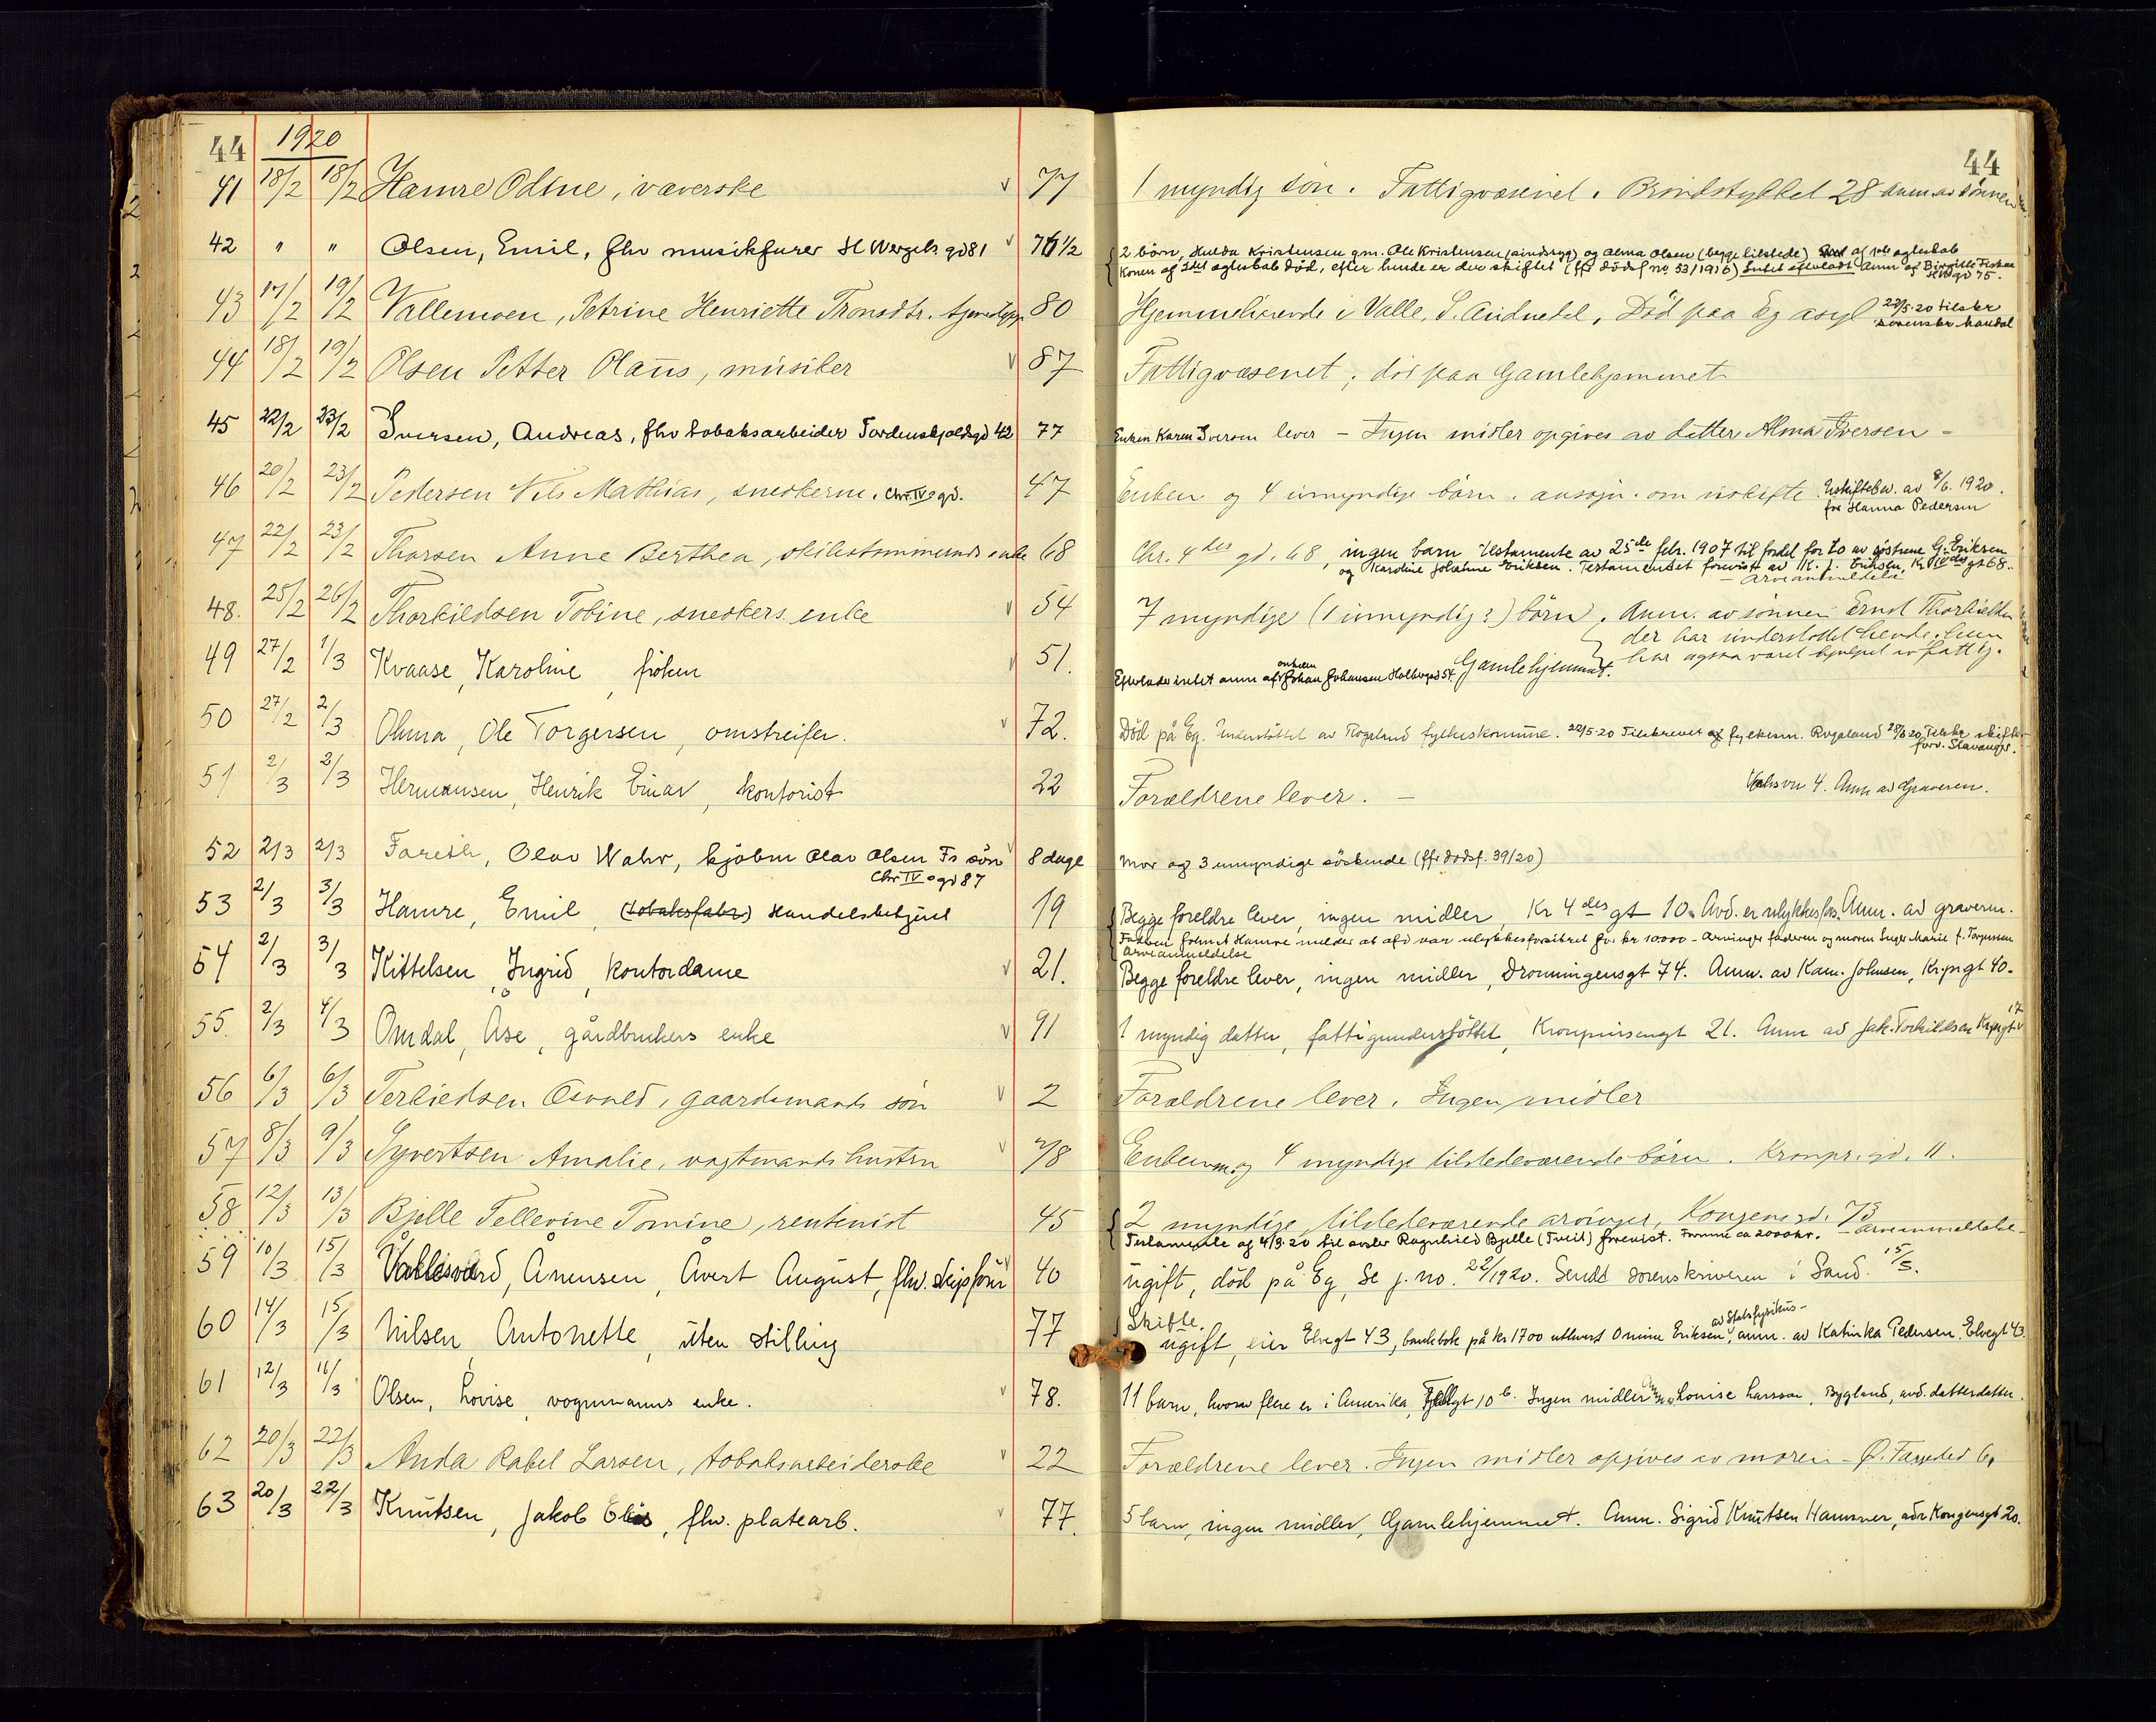 44 1920
44
41 18/2 18/2 Hamre Odine, væverske v 77 1 myndig søn. Fattigvæsenet. Brindstykket 28 anm. av sønnen
42 " " Olsen, Emil, fhv musikfurer H Wergels gd 81 v 76 1/2 2 børn, Hulda Kristensen gm. Ole Kristensen (sindssyg) og Alma Olsen (begge tilstede) af 1ste egteskab
Konen af 2det egteskab død, efter hende er der skiftet (ffr dødsf no 53/1916) Intet efterladt Anm af Birgitte
gd 75.
43 17/2 19/2 Vallemoen, Petrine Henriette Tronsdtr. 80 Hjemmehørende i Valle, S. Audnedal, Død paa Eg asyl 22/5-20 tilskr
sorenskr. Mandal
44 18/2 19/2 Olsen Petter Olaus, musiker v 87 Fattigvæsenet, död paa Gamlehjemmet
45 22/2 23/2 Iversen, Andreas, fhv tobaksarbeider Tordenskjoldsgd 42 77 Enken Karen Iversen lever – Ingen midler opgives av datter Alma Iversen –
46 20/2 23/2 Pedersen Nils Mathias, snedkerm. Chr. IVs gd. 47 Enken og 4 umyndige børn. ansøgn. om uskifte. Uskiftebev. av 8/6. 1920.
for Hanna Pedersen
47 22/2 23/2 Thorsen Anne Berthea, skibstømmermands enke 68 Chr. 4des gd. 68, ingen barn Testamente av 25de febr. 1907 til fordel for to av søstrene G. Eriksen
og Karoline Johanne Eriksen. Testamentet forevist av K. J. Eriksen, Kr IVdes gt 68.
– Arveanmeldelse
48. 25/2 26/2 Thorkildsen Tobine, snedkers enke v 54 7 myndige (1 umyndig?) børn. Anm. av sønnen Ernst Thorkildsen
der har understøttet hende. Hun
har ogsaa været hjulpet av fattigv.
49 27/2 1/3 Kvaase, Karoline, frøken v 51. Efterlader intet anm af onkelen Johan Johansen Holbergsgd 54 Gamlehjemmet.
50 27/2 2/3 Ohma, Ole Torgersen, omstreifer. v 72. Död på Eg. Understøttet av Rogaland fylkeskommune. 22/5-20 Tilskrevet fylkesm. Rogaland Tilskr skifte-
forv. Stavanger.
51 2/3 2/3 Hermansen, Henrik Einar, kontorist 22 Forældrene lever. – Vahsvn 4. Anm av Graveren.
52 2/3 2/3 Fareth, Olav Wahr, kjøbm Olav Olsen Fs søn v 8 dage Mor og 3 umyndige söskende (ffr dødsf. 39/20)
Chr IVs gd 87
53 2/3 3/3 Hamre, Emil, (tobaksfabr) Handelsbetjent 19 Begge foreldre lever, ingen midler, Kr 4des gt 10. Avd. er ulykkesfors. Anm. av graveren.
Faderen Hamre melder at afd var ulykkesforsikret for kr 10000 – Arvinger faderen og moren Inger Marie f. Torgersen
Arveanmeldelse
54 2/3 3/3 Kittelsen, Ingrid, kontordame v 21. Begge foreldre lever, ingen midler, Dronningensgt 74. Anm. av Kam. Johnsen, Kr.prgt 40.
55. 2/3 4/3 Omdal, Åse, gårdbrukers enke v 91 1 myndig datter, fattigunderstöttet, Kronprinsengt 21. Anm av Jak. Torkildsen Kr.prgt 17
56 6/3 6/3 Terkiedsen Osvald, gaardsmands søn v 2 Forældrene lever. Ingen midler
57 8/3 9/3 Syvertsen Amalie, vagtmands hustru v 78 Enkem. og 4 myndige tilstedeværende børn. Kronpr. gd. 11.
58 12/3 13/3 Bjelle Tellevine Tomine, rentenist 45 2 myndige, tilstedeværende arvinger, Kongens gd. 73
Testamente af 4/3-20 til søster Ragnhild Bjelle (Tveit) forevist. Formue ca 2000 kr. – Arveanmeldelse –
59 10/3 15/3 Vallesverd, Ånensen, Avert August, fhv. skipsförer 40 ugift, död på Eg, Se j. no. 22/1920. Sendt sorenskriveren i Sand. 15/5.
60 14/3 15/3 Nilsen, Antonette, uten stilling 77 Skifte.
ugift, eier Elvegt 43, bankbok på kr 1700 utlevert Omine Eriksen av Statsfysikus – anm. av Katinka Pedersen. Elvegt 43.
61 12/3 16/3 Olsen, Lovise, vognmanns enke. v 78. 11 barn, hvorav flere er i Amerika, gt 10 b. Ingen midler Louise Larsson, Bygland, avd. datterdatter.
62 20/3 22/3 Anda Rakel Larsen, tobaksarbeiderske v 22 Forældrene lever. Ingen midler opgives av moren – Ø.
63 20/3 22/3 Knutsen, Jakob Elias, fhv. platearb. v 77. 5 barn, ingen midler, Gamlehjemmet. Anm. Sigrid Knutsen Hammer, adr Kongensgt 20.